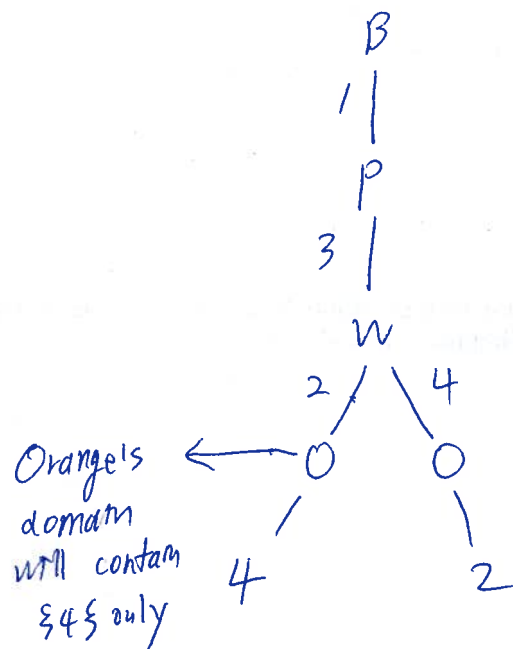 B
1
P
3
W
2 4
Orange's O O
domain
will contain 4 2
{4} only